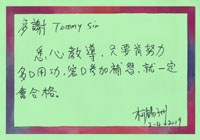 多謝 Tommy sir
悉心教導,只要肯努力
多D用功,常D參加補習,就一定
會合格。
2-4-2019